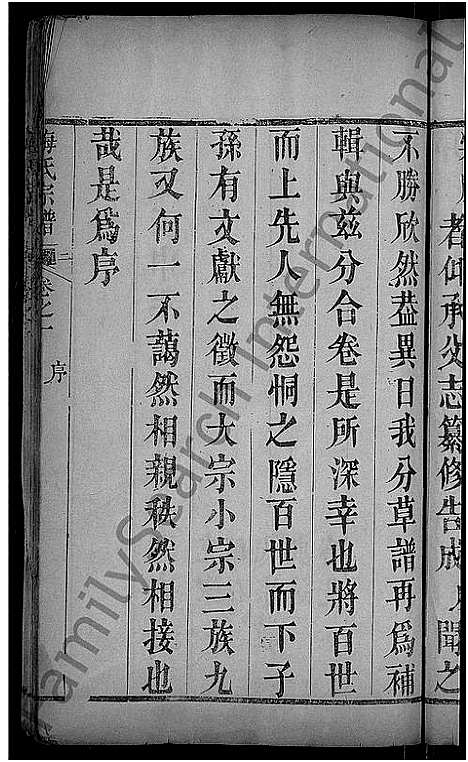 者仰承父志纂修告成
聞之
不勝欣然葢異日我分草譜再為補
輯與茲分合卷是所深幸也將百世
而上先人無怨恫之隱百世而下子
孫有文獻之徵而大宗小宗三族九
族又何一不藹然相親秩然相接也
哉是為序
梅氏宗譜
卷之一
序
FamilySearch International